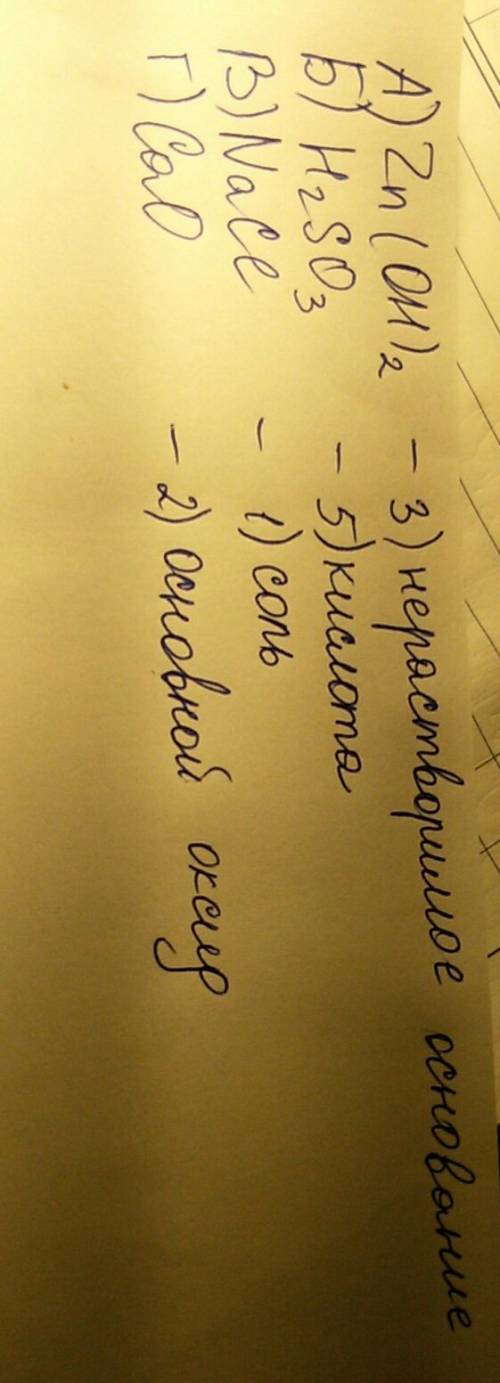 А) Zn(OH)₂ – 3) нерастворимое основание
Б) H₂SO₃ – 5) кислота
В) NaCl – 1) соль
Г) CaO – 2) основной оксид